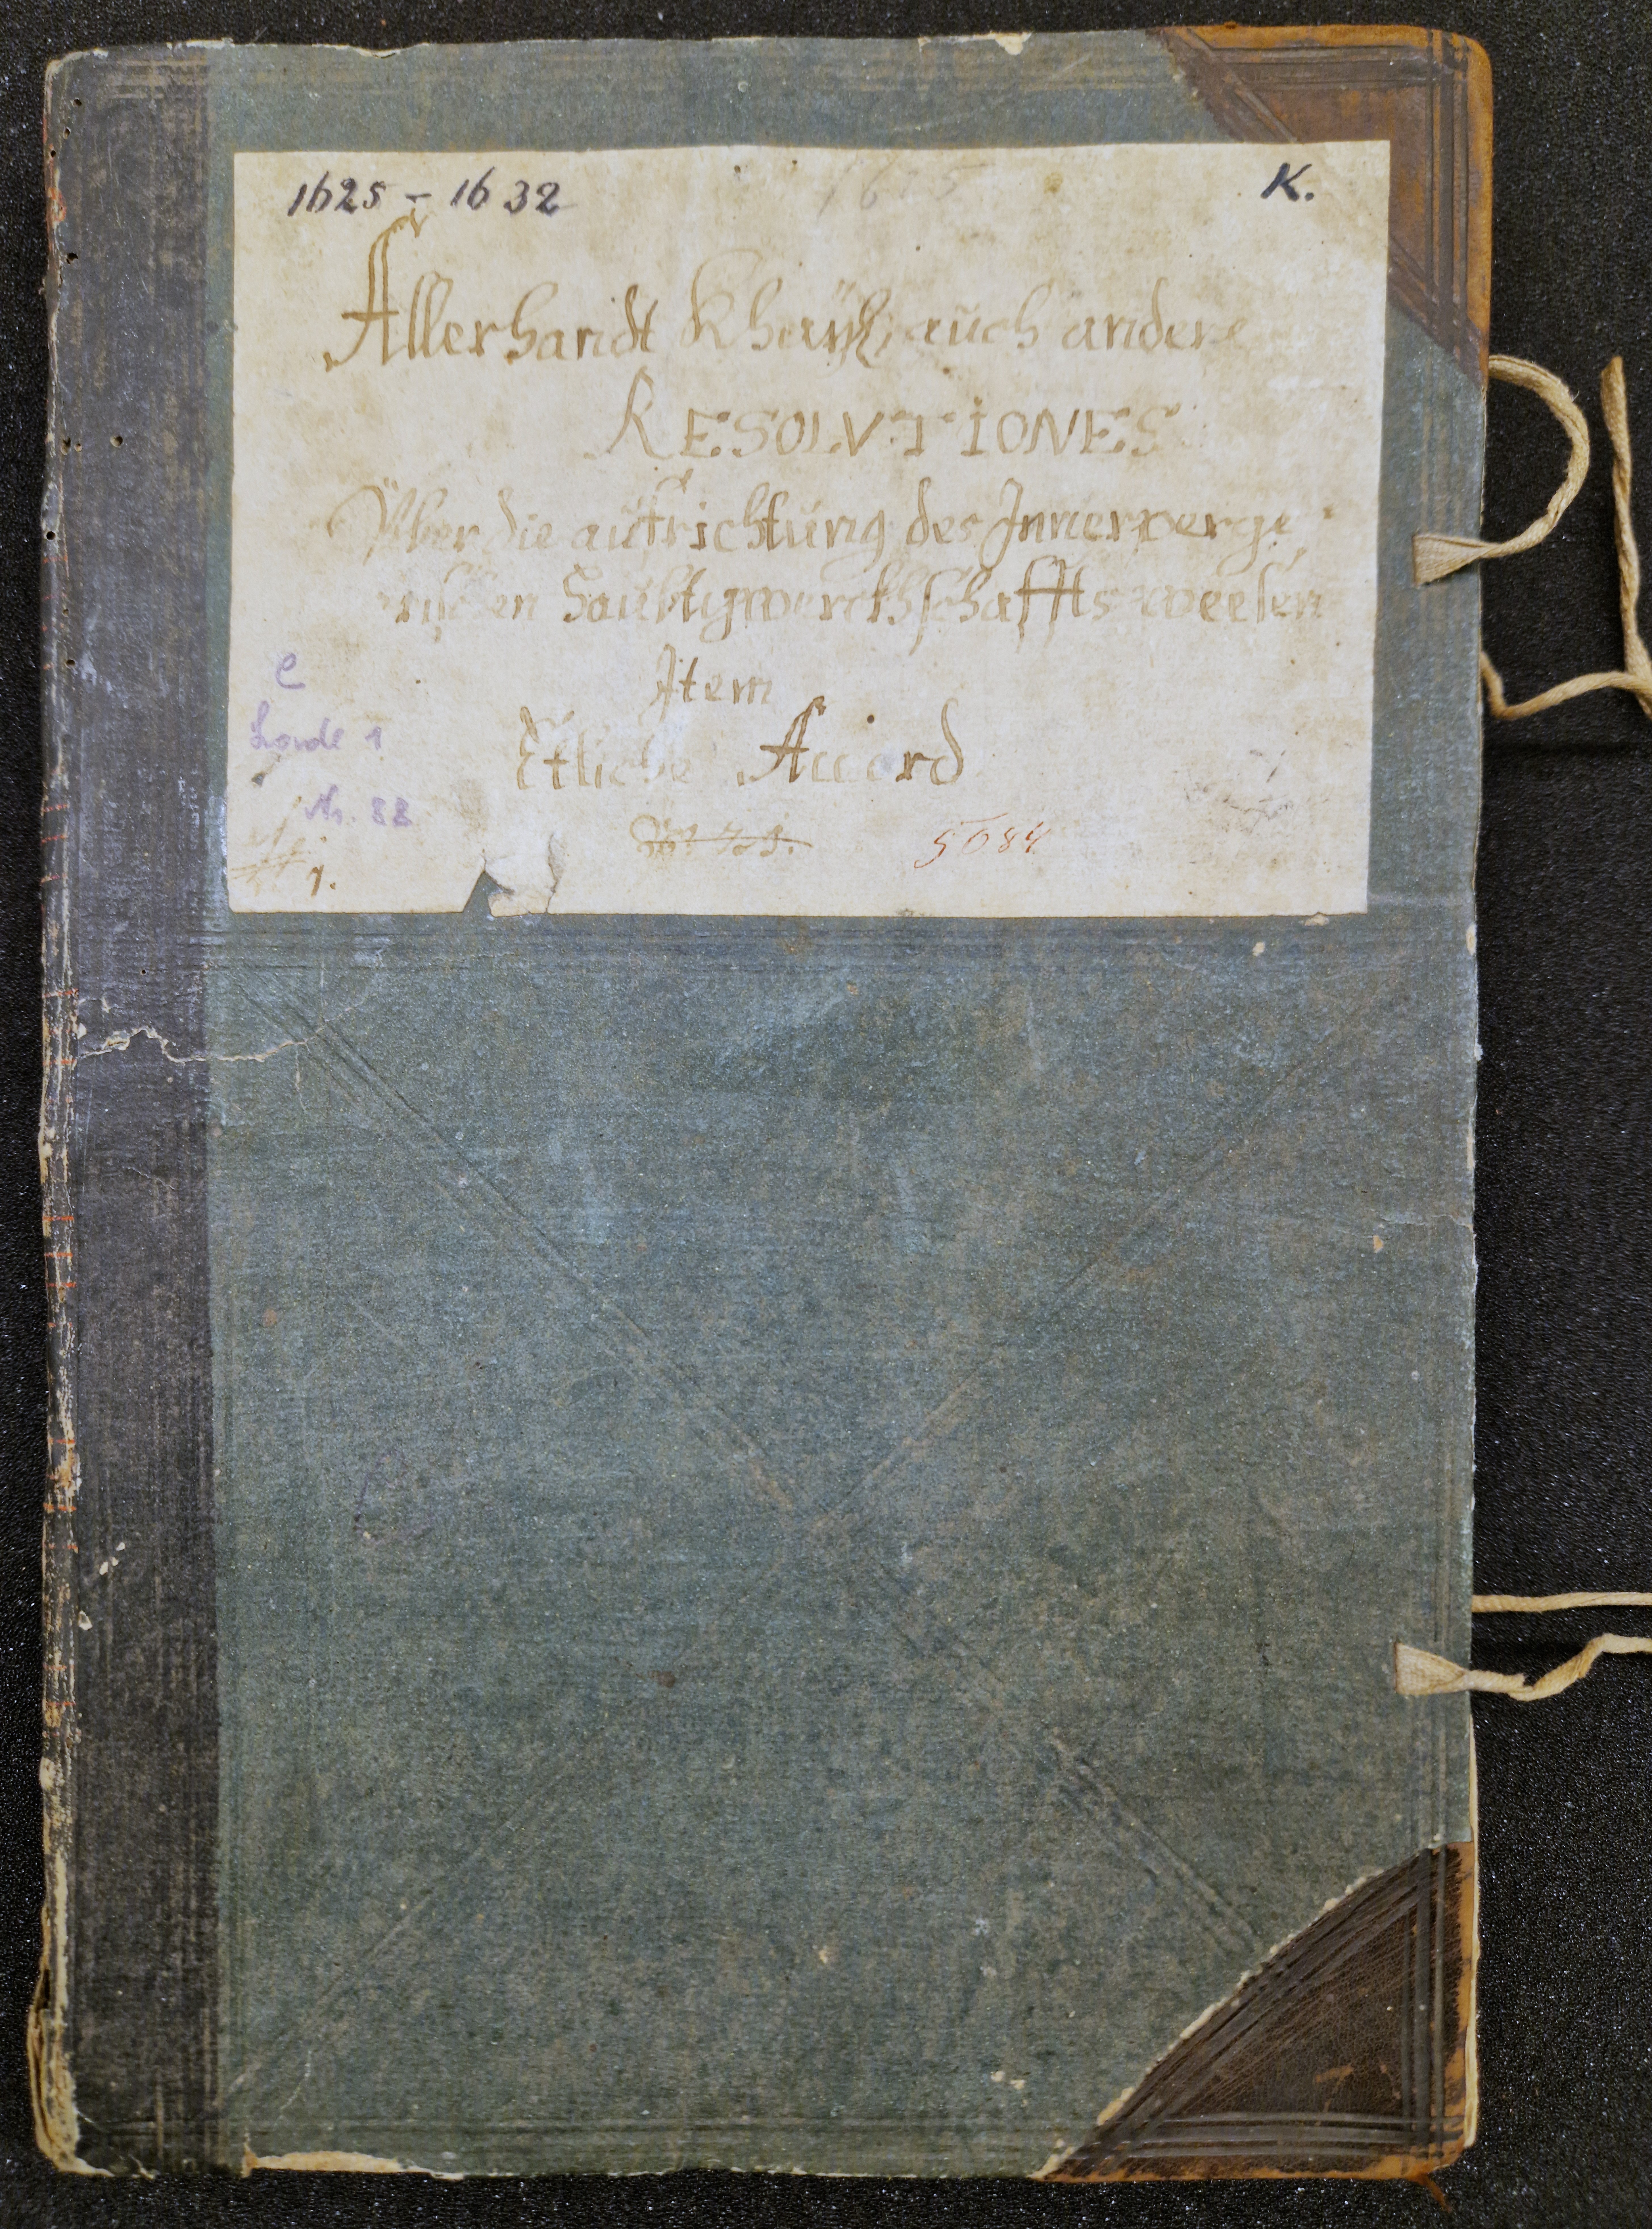 1625 – 1632 1625 K.
Allerhandt Khaÿs: auch andere
RESOLVTIONES
Vber die aufrichtung des Innerperge
rischen haubtgwerckhschaffts weesen
Item
Etliche Accord
e
Lade 1
Nr. 88
5084
1.